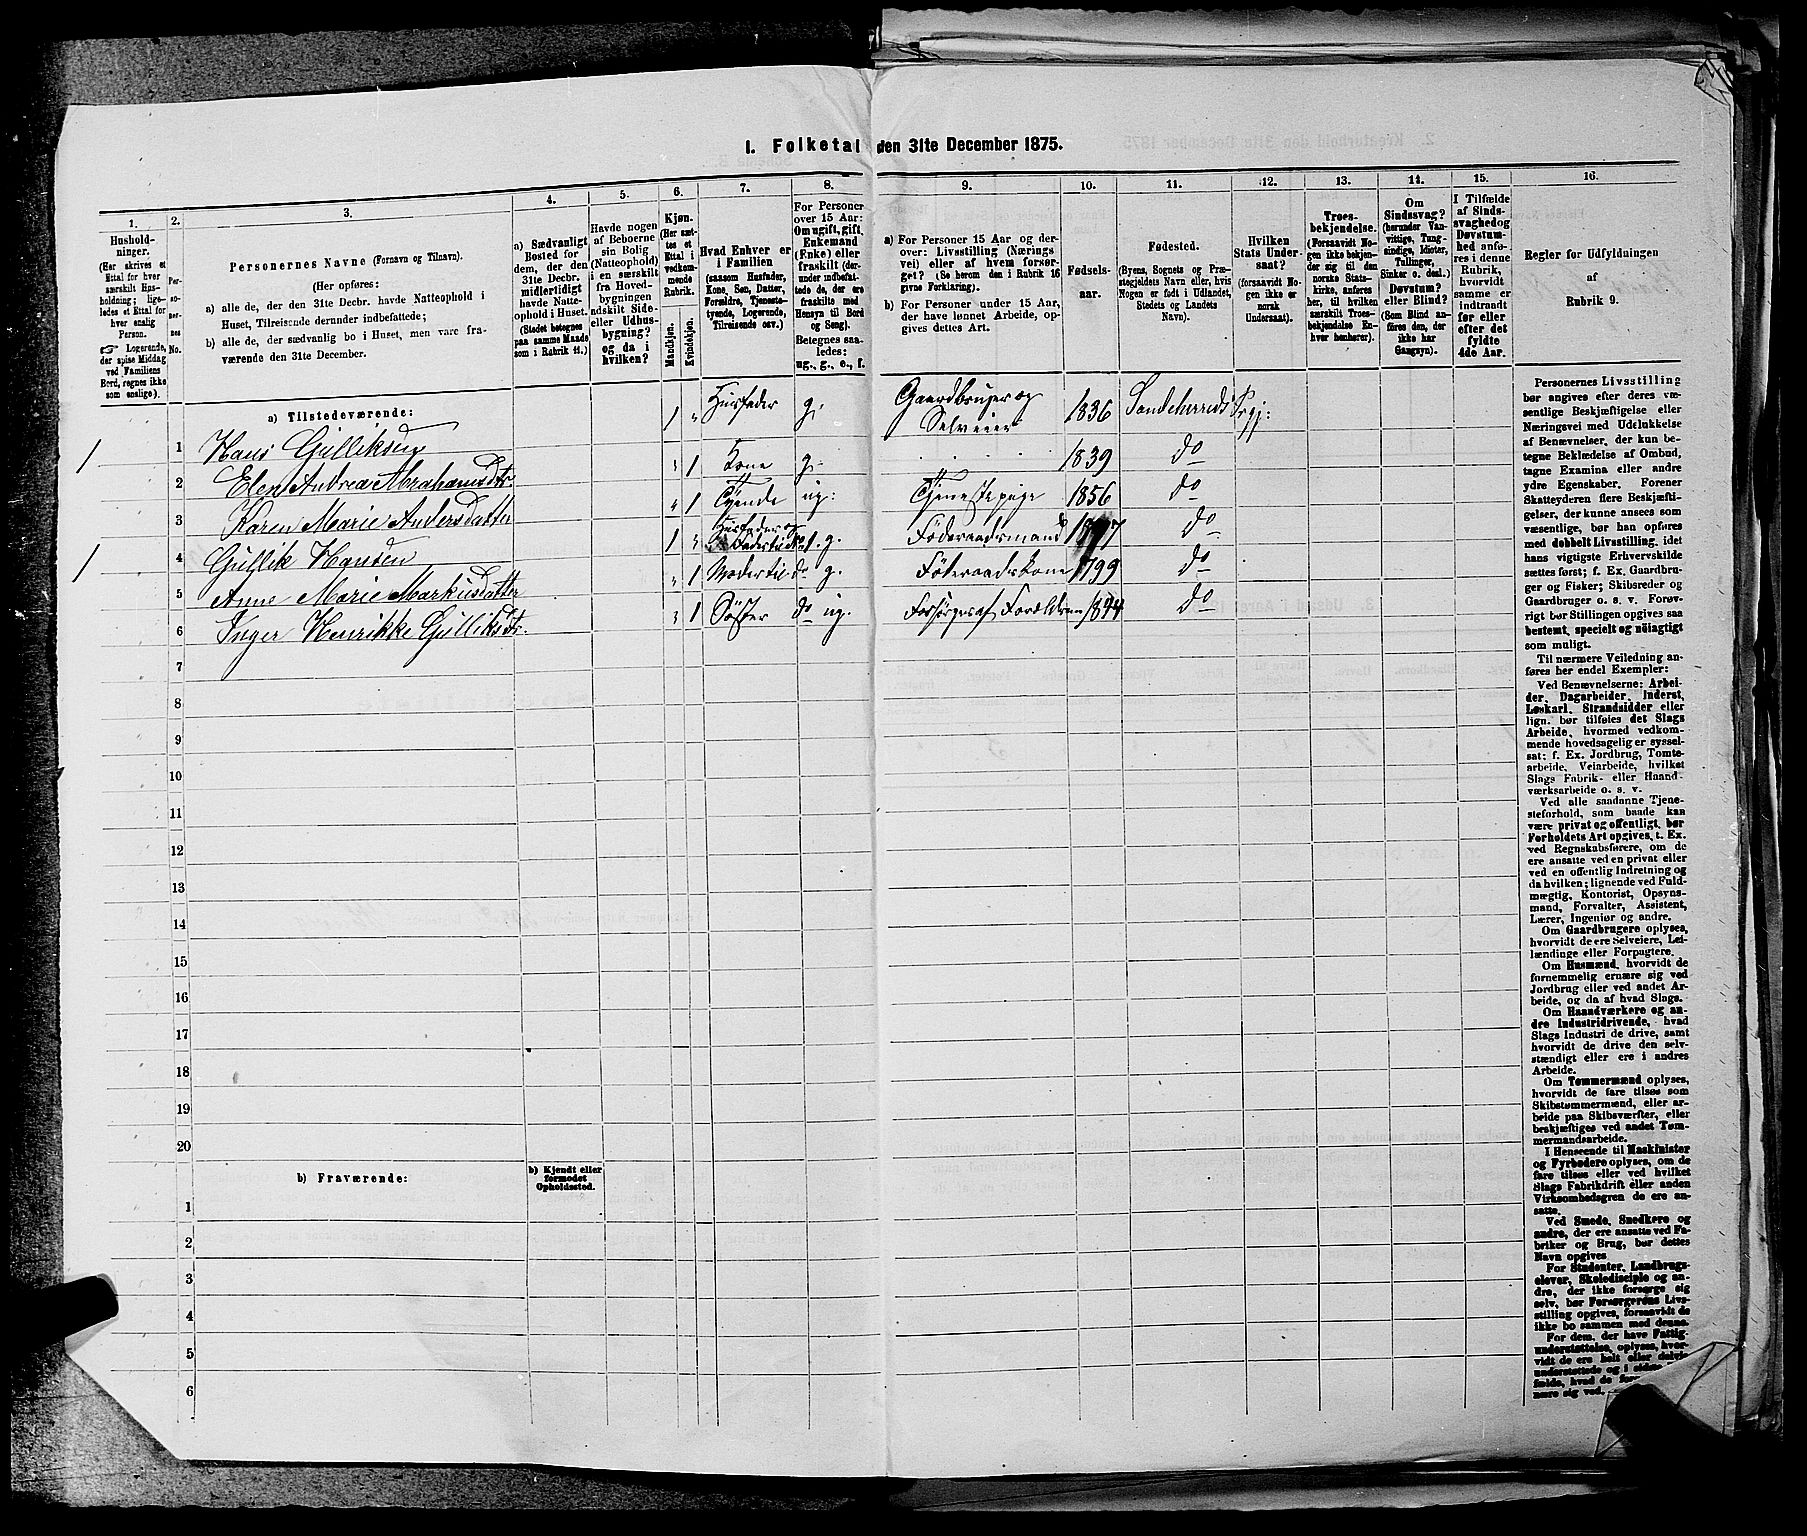 1. Folketal den 31te December 1875.
1. 2. 3. 4. 5. 6. 7. 8. 9. 10. 11. 12. 13. 14. 15. 16.
Hushold-
ninger.
(Her skrives et
Ettal for hver
særskilt Hus-
holdning; lige-
ledes et Ettal for
hver enslig
Person.
☞ Logerende,
der spise Middag
ved Familiens
Bord, regnes ikke
som enslige).
Per-
so-
ner-
nes
No.
Personernes Navne (Fornavn og Tilnavn).
(Her opføres:
a) alle de, der den 31te Decbr. havde Natteophold i
Huset, Tilreisende derunder indbefattede;
b) alle de, der sædvanlig bo i Huset, men vare fra-
værende den 31te December.
a) Sædvanligt
Bosted for
dem, der den
31te Decbr.
midlertidigt
havde Natte-
ophold i Huset.
(Stedet betegnes
paa samme Maade
som i Rubrik 11.)
Havde nogen
af Beboerne
sin Bolig
(Natteophold)
i en særskilt
fra Hoved-
bygningen
adskilt Side-
eller Udhus-
bygning?
og da i
hvilken?
Kjøn.
(Her sæt-
tes et
Ettal i
vedkom-
mende
Rubrik.
Mandkjøn.
Kvindekjøn.
Hvad Enhver er
i Familien
(saasom Husfader,
Kone, Søn, Datter,
Forældre, Tjeneste-
tyende, Logerende,
Tilreisende osv.)
For Personer
over 15 Aar:
Om ugift, gift,
Enkemand
(Enke) eller
fraskilt (der-
under indbefat-
tede de, der ere
fraskilte med
Hensyn til Bord
og Seng).
Betegnes saa-
ledes:
ug., g., e., f.
a) For Personer 15 Aar og der-
over: Livsstilling (Nærings-
vei) eller af hvem forsør-
get? (Se herom den i Rubrik 16
givne Forklaring).
b) For Personer under 15 Aar,
der have lønnet Arbeide, op-
gives dettes Art.
Fødsels-
aar.
Fødested.
(Byens, Sognets og Præ-
stegjeldets Navn eller, hvis
Nogen er født i Udlandet,
Stedets og Landets
Navn).
Hvilken
Stats Under-
saat?
(forsaavidt No-
gen ikke er
norsk
Undersaat).
Troes-
bekjendelse.
(Forsaavidt No-
gen ikke bekjen-
der sig til den
norske Stats-
kirke, anføres
her, til hvilken
særskilt Troes-
bekjendelse En-
hver henhører).
Om
Sindssvag?
(herunder Van-
vittige, Tung-
sindige, Idioter,
Tullinger,
Sinker o. desl.)
Døvstum?
eller Blind?
(Som Blind an-
føres den, der
ikke har
Gangsyn).
I Tilfælde
af Sinds-
svaghed og
Døvstum-
hed anfø-
res i denne
Rubrik,
hvorvidt
samme er
indtraadt
før eller
efter det
fyldte
4de Aar.
Regler for Udfyldningen
af
Rubrik 9.
a) Tilstedeværende:
1 1 Hans Gulliksen 1 " Husfader g. Gaardbruger og Selveier 1836 Sandeherreds Prgj:
2 Elen Andrea Abrahamsdtr. " 1 Kone g. 1839 do
3 Karen Marie Andersdatter " 1 Tyende ug: Tjenestepige 1856 do
1 4 Gullik Hansen 1 " Husfader og Fader til No. 1. g. Föderaadsmand do
5 Anne Marie Markusdatter " 1 Moder til do g. Föderaadskone 1799 do
6 Inger Henrikke Gulliksdtr. " 1 Søster do ug. Forsørges af Forældrene 1844 do
7
8
9
10
11
12
13
14
15
16
17
18
19
20
b) Fraværende:
b) Kjendt eller
formodet
Opholdssted.
1
2
3
4
5
6
Personernes Livsstilling
bør angives efter deres væ-
sentlige Beskjæftigelse eller
Næringsvei med Udelukkelse
af Benævnelser, der kun be-
tegne Beklædelse af Ombud,
tagne Examina eller andre
ydre Egenskaber. Forener
Skatteyderen flere Beskjæfti-
gelser, der kunne ansees som
væsentlige, bør han opføres
med dobbelt Livsstilling, idet
hans vigtigste Erhvervskilde
sættes først; f. Ex. Gaardbru-
ger og Fisker; Skibsreder og
Gaardbruger o. s. v. Forøv-
rigt bør Stillingen opgives saa
bestemt, specielt og nöiagtigt
som muligt.
Til nærmere Veiledning an-
føres her endel Exempler:
Ved Benævnelserne: Arbei-
der, Dagarbeider, Inderst,
Løskarl, Strandsidder eller
lign. bør tilføies det Slags
Arbeide, hvormed vedkom-
mende hovedsagelig er syssel-
sat: f. Ex. Jordbrug, Tomte-
arbeide, Veiarbeide, hvilket
Slags Fabrik- eller Haand-
værksarbeide o. s. v.
Ved alle saadanne Tjene-
steforhold, som baade kan
være privat og offentligt, bør
Forholdets Art opgives, t. Ex.
ved Regnskabsførere, om de
ere ansatte ved en privat eller
ved en offentlig Indretning og
da hvilken; lignende ved Fuld-
mægtig, Kontorist, Opsyns-
mand, Forvalter, Assistent,
Lærer, Ingeniør og andre.
Om Gaardbrugere oplyses,
hvorvidt de ere Selveiere, Lei-
lændinge eller Forpagtere.
Om Husmænd, hvorvidt de
fornemmelig ernære sig ved
Jordbrug eller ved andet Ar-
beide, og da af hvad Slags.
Om Haandværkere og an-
dre Industridrivende, hvad
Slags Industri de drive, samt
hvorvidt de drive den selv-
stændigt eller ere i andres
Arbeide.
Om Tømmermænd oplyses,
hvorvidt de fare tilsøs som
Skibstømmermænd, eller ar-
beide paa Skibsværfter, eller
beskjæftiges ved andet Tøm-
mermandsarbeide.
I Henseende til Maskinister
og Fyrbødere oplyses, om de
fare tilsøs eller ved hvilket
Slags Fabrikdrift eller anden
Virksomhedsgren de ere an-
satte.
Ved Smede, Snedkere og
andre, der ere ansatte ved Fa-
briker og Brug, bør dettes
Navn opgives.
For Studenter, Landbrugs-
elever, Skoledisciple og an-
dre, der ikke forsørge sig
selv, bør Forsørgerens Livs-
stilling opgives, forsaavidt de
ikke bo sammen med denne.
For dem, der have Fattig-
understøttelse, oplyses, hvor-
vidt de ere helt eller delvis
understøttede og i sidste
fælde, hvad de
nære sig ved.